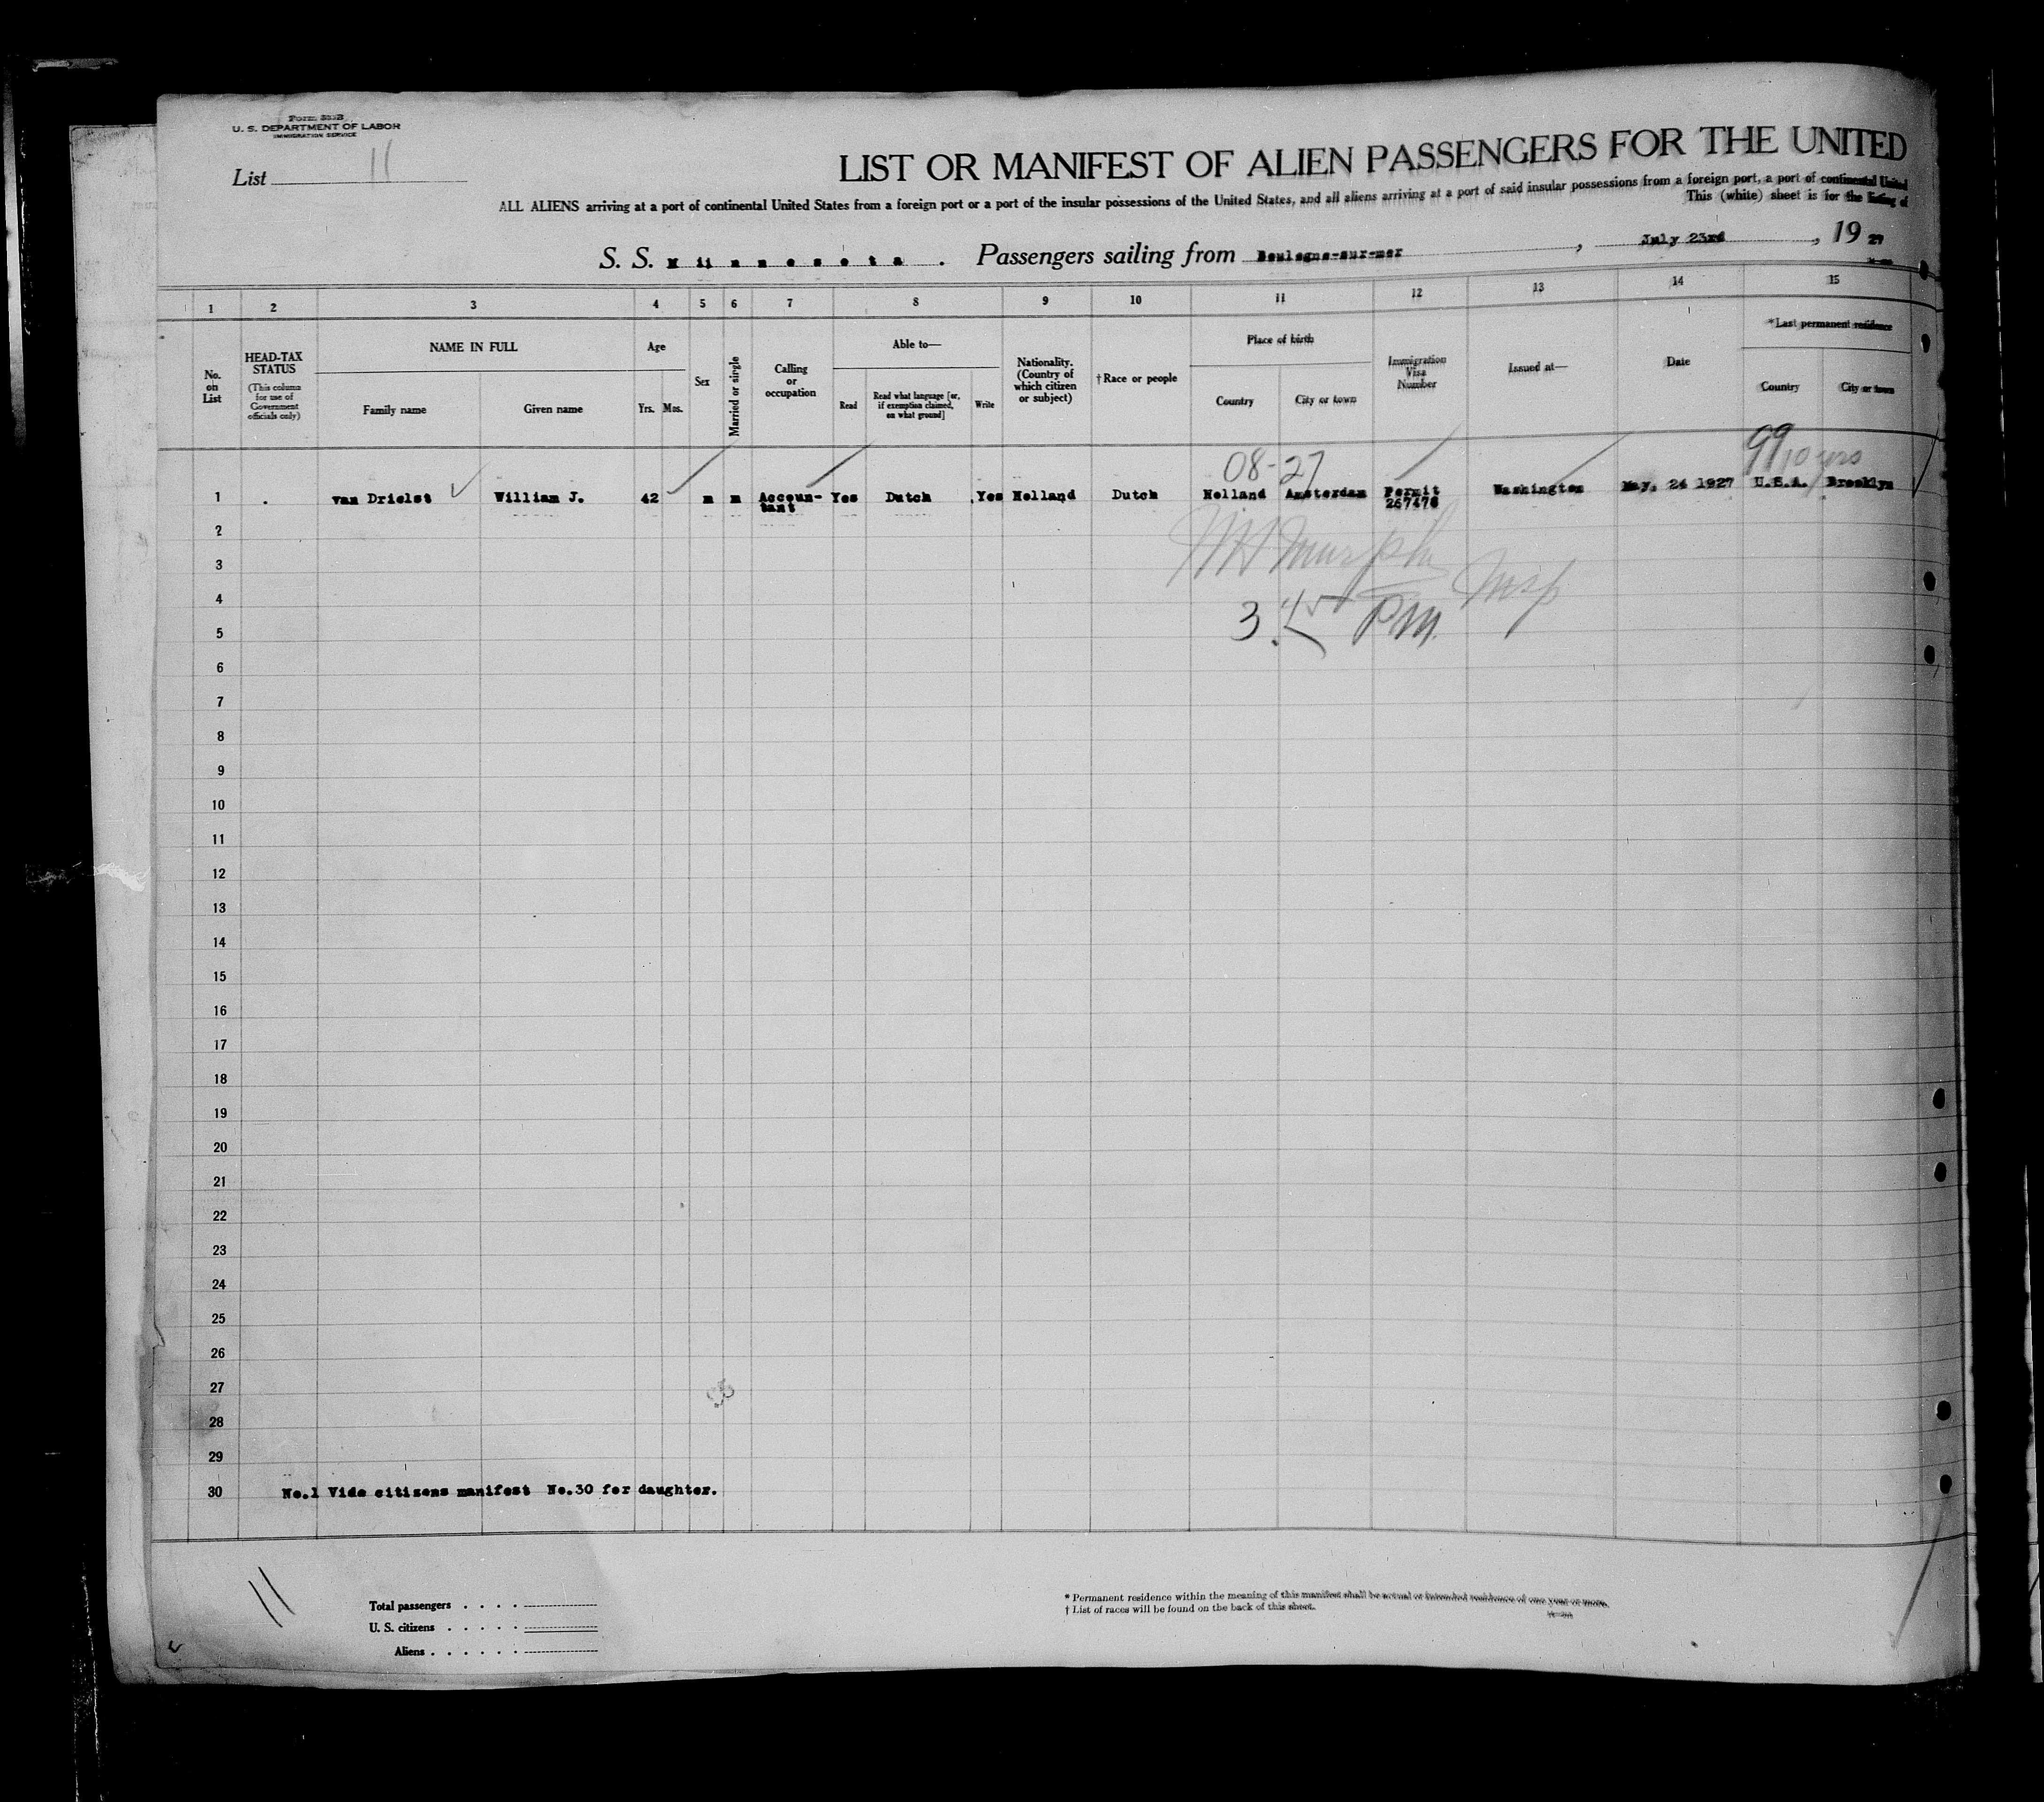 U. S. DEPARTMENT OF LABOR
IMMIGRATION SERVICE
List 11
LIST OR MANIFEST OF ALIEN PASSENGERS FOR THE UNITED
ALL ALIENS arriving at a port of continental United States from a foreign port or a port of the insular possessions of the United States, and all aliens arriving at a port of said insular possessions from a foreign port, a port of continental United
This (white) sheet is for the listing of
S. S. Minnesota . Passengers sailing from Boulogne-sur-mer , July 23rd , 19 27
1 2 3 4 5 6 7 8 9 10 11 12 13 14 15
No. on List
HEAD-TAX STATUS
(This column for use of Government officials only)
NAME IN FULL
Family name Given name
Age
Yrs. Mos.
Sex
Married or single
Calling or occupation
Able to—
Read
Read what language [or, if exemption claimed, on what ground]
Write
Nationality. (Country of which citizen or subject)
† Race or people
Place of birth
Country City or town
Immigration Visa Number
Issued at—
Date
*Last permanent residence
Country City or town
08-27 99 10 yrs
1 van Drielst William J. 42 m m Accoun- Yes Dutch Yes Holland Dutch Holland Amsterdam Permit Washington May, 24 1927 U.S.A. Brooklyn
tant 267476
2
Murphy
3
Insp
4
3.45 PM.
5
6
7
8
9
10
11
12
13
14
15
16
17
18
19
20
21
22
23
24
25
26
27
28
29
30 No.1 Vide citizens manifest No.30 for daughter.
11
Total passengers . . . .
U. S. citizens . . . . .
Aliens . . . . . .
* Permanent residence within the meaning of this manifest shall be actual or intended residence of one year or more.
† List of races will be found on the back of this sheet.